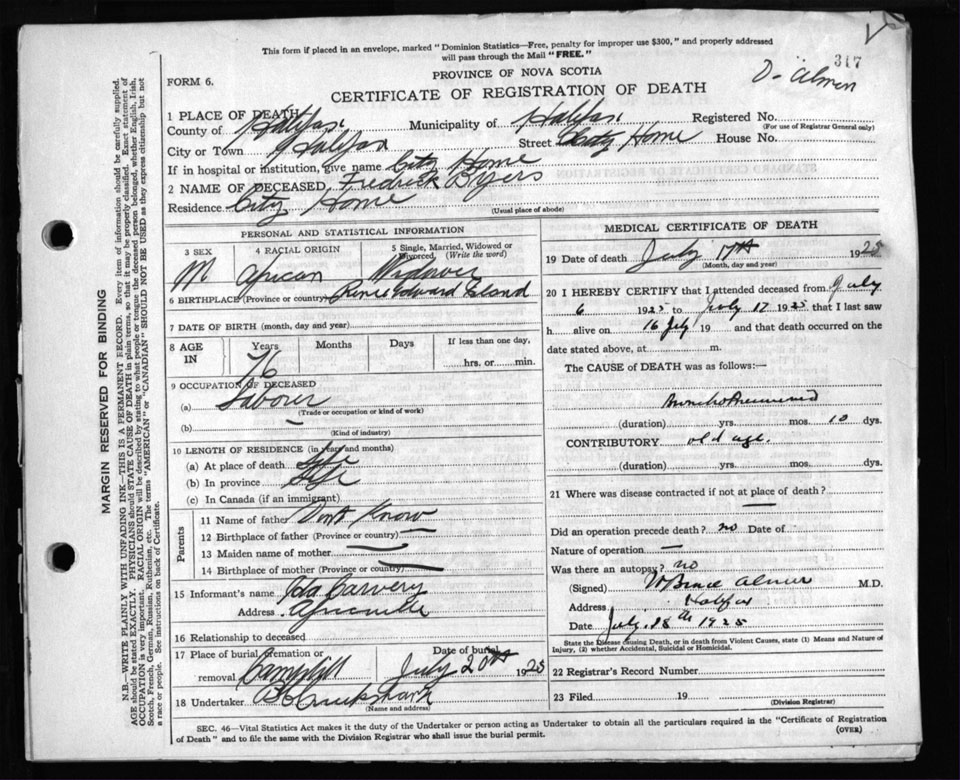 This form if placed in an envelope, marked "Dominion Statistics—Free, penalty for improper use $300," and properly addressed
will pass through the Mail "FREE."
317
FORM 6.
PROVINCE OF NOVA SCOTIA
CERTIFICATE OF REGISTRATION OF DEATH
1 PLACE OF DEATH
County of Halifax Municipality of Halifax Registered No.
(For use of Registrar General only)
City or Town Halifax Street City Home House No.
If in hospital or institution, give name City Home
2 NAME OF DECEASED Fredrick Byers
Residence City Home
(Usual place of abode)
PERSONAL AND STATISTICAL INFORMATION
3 SEX 4 RACIAL ORIGIN 5 Single, Married, Widowed or
Divorced, (Write the word)
M African Widower
6 BIRTHPLACE (Province or country) Prince Edward Island
7 DATE OF BIRTH (month, day and year)
8 AGE IN Years Months Days If less than one day,
76 hrs. or min.
9 OCCUPATION OF DECEASED
(a) Laborer
(Trade or occupation or kind of work)
(b)
(Kind of industry)
10 LENGTH OF RESIDENCE (in years and months)
(a) At place of death Life
(b) In province Life
(c) In Canada (if an immigrant)
Parents
11 Name of father Dont Know
12 Birthplace of father (Province or country) —
13 Maiden name of mother —
14 Birthplace of mother (Province or country) —
15 Informant's name Ida Carvery
Address Africville
16 Relationship to deceased
17 Place of burial, cremation or Date of burial
removal. July 20th 1925
18 Undertaker
(Name and address)
MEDICAL CERTIFICATE OF DEATH
19 Date of death July 17th 1925
(Month, day and year)
20 I HEREBY CERTIFY that I attended deceased from July
6 1925 to July 17 1925 that I last saw
h alive on 16 July 19 and that death occurred on the
date stated above, at m.
The CAUSE of DEATH was as follows:—
Broncho Pneumonia
(duration) yrs. mos. 10 dys.
CONTRIBUTORY old age.
(duration) yrs. mos. dys.
21 Where was disease contracted if not at place of death?
—
Did an operation precede death? no Date of
Nature of operation —
Was there an autopsy? no
(Signed) Almon M.D.
Address Halifax
Date July 18th 1925
State the Disease causing Death, or in death from Violent Causes, state (1) Means and Nature of
Injury, (2) whether Accidental, Suicidal or Homicidal.
22 Registrar's Record Number
23 Filed 19
(Division Registrar)
SEC. 46—Vital Statistics Act makes it the duty of the Undertaker or person acting as Undertaker to obtain all the particulars required in the "Certificate of Registration
of Death" and to file the same with the Division Registrar who shall issue the burial permit.
(OVER)
MARGIN RESERVED FOR BINDING
N.B.—WRITE PLAINLY WITH UNFADING INK—THIS IS A PERMANENT RECORD. Every item of information should be carefully supplied.
AGE should be stated EXACTLY. PHYSICIANS should STATE CAUSE OF DEATH in plain terms, so that it may be properly classified. Exact statement of
OCCUPATION is very important. RACIAL ORIGIN will be described by stating to what people or tongue the deceased person belonged, whether English, Irish,
Scotch, French, German, Russian, Ruthenian, etc. The terms "AMERICAN" or "CANADIAN" SHOULD NOT BE USED as they express citizenship but not
a race or people. See instructions on back of Certificate.